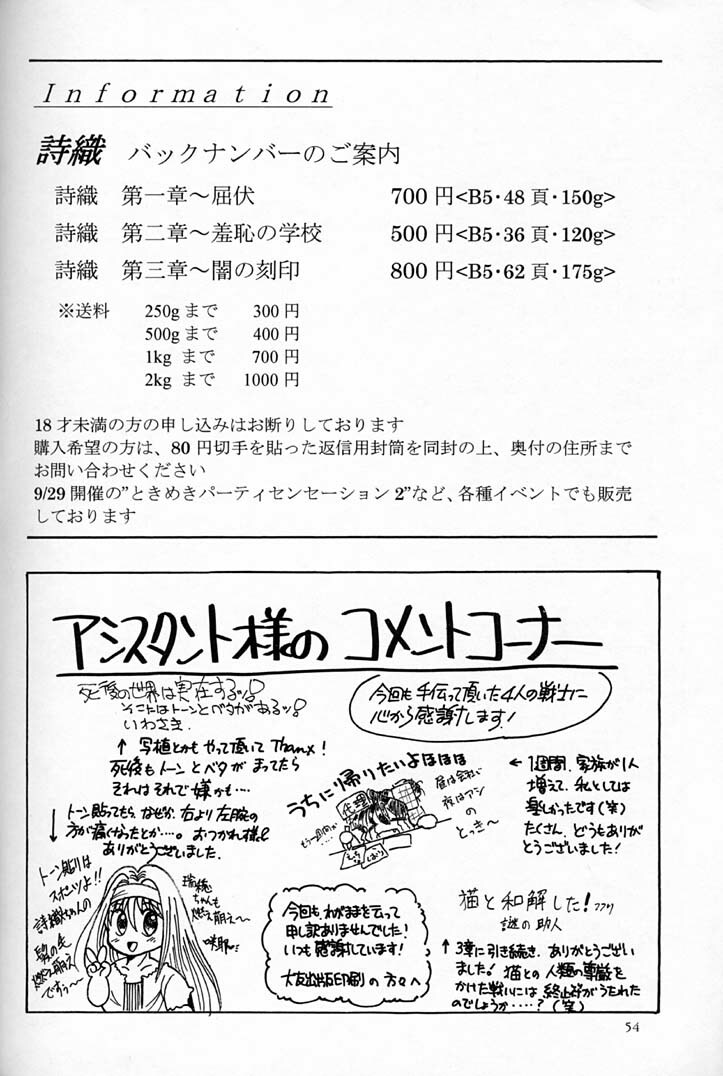 Information
詩織 バックナンバーのご案内
詩織 第一章〜屈伏 700円<B5・48頁・150g>
詩織 第二章〜羞恥の学校 500円<B5・36頁・120g>
詩織 第三章〜闇の刻印 800円<B5・62頁・175g>
※送料 250gまで 300円
500gまで 400円
1kg まで 700円
2kg まで 1000円
18才未満の方の申し込みはお断りしております
購入希望の方は、80円切手を貼った返信用封筒を同封の上、奥付の住所まで
お問い合わせください
9/29開催の”ときめきパーティセンセーション2”など、各種イベントでも販売
しております
アシスタント様の コメントコーナー
死後の世界は実在するッ!
そこにはトーンとベタがあるッ!
いわさき
↑ 写植とかも やって頂いて Thanx!
死後もトーンとベタが まってたら
それは それで 嫌かも‥‥
今回も 手伝って頂いた 4人の戦士に
心から感謝します!
うちに帰りたいよほほほ
昼は会社で
夜はアシ
の
とっき〜
← 1週間、家族が1人
増えて、私としては
楽しかったです(笑)
たくさん、どうもありが
とうございました!
↓ トーン貼ってたら、なぜか、右より左腕の
方が痛くなったとか‥‥。おつかれ様!
ありがとうございました.
トーン貼りは
スポーツよ!!
詩織ちゃんの
髪の毛
燃え萌え
ですぅ〜
瑞穂
ちゃんも
燃え萌え〜
咲耶
今回も、わがままを云って
申し訳ありませんでした!
いつも感謝しています!
大友出版印刷の方々へ
猫と和解した! フフリ
謎の助人
↑ 3章に引き続き、ありがとうござい
ました! 猫との 人類の尊厳を
かけた戦いには 終止符がうたれた
のでしょうか‥‥? (笑)
54